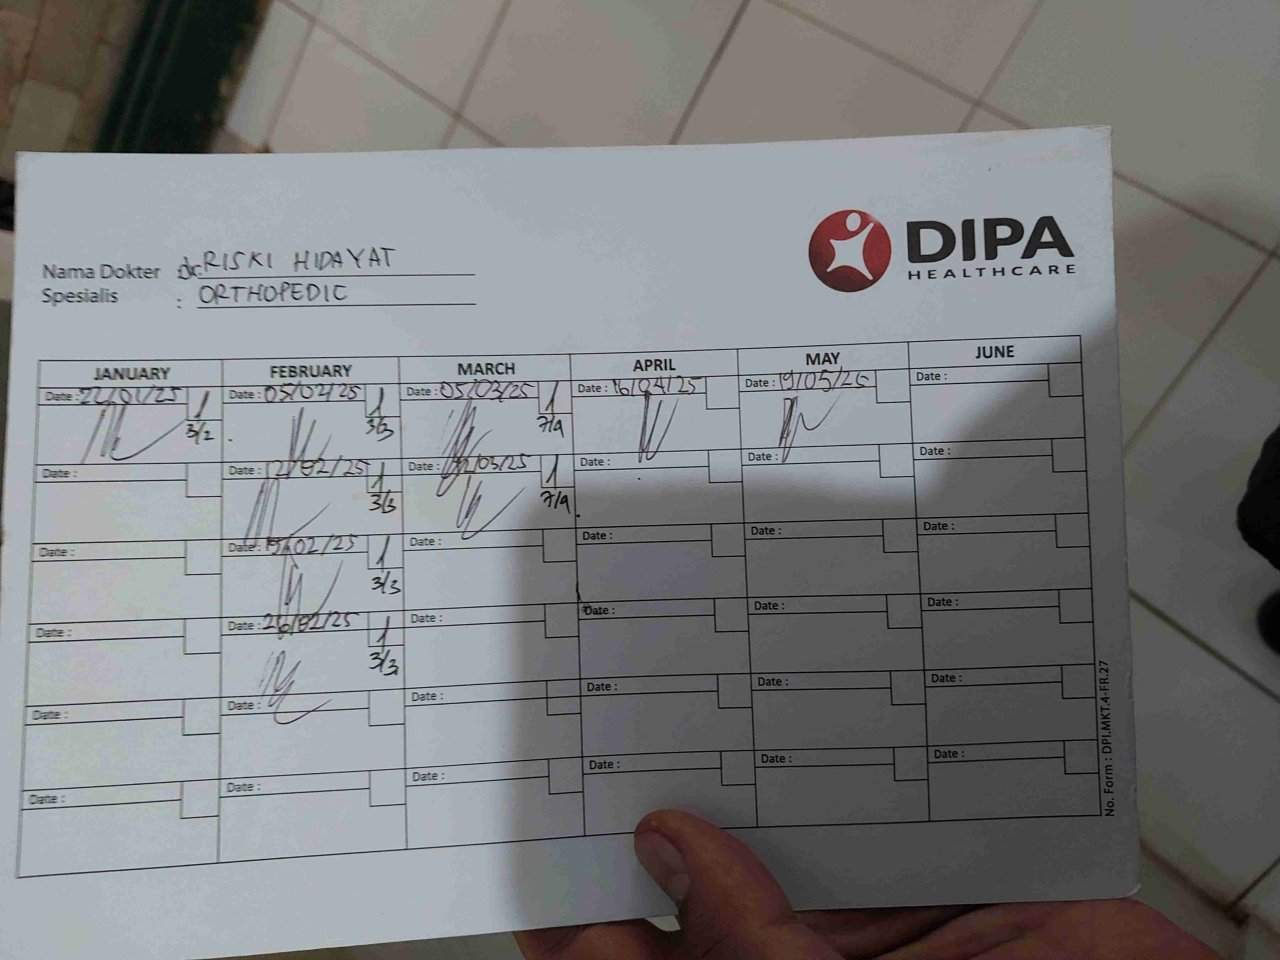 DIPA
HEALTHCARE
Nama Dokter : dr. RISKI HIDAYAT
Spesialis : ORTHOPEDIC
JANUARY FEBRUARY MARCH APRIL MAY JUNE
Date : 22/01/25 1 Date : 05/02/25 1 Date : 05/03/25 1 Date : 16/04/25 Date : 19/05/25 Date :
3/2 3/3 7/4
Date : Date : 12/02/25 1 Date : 12/03/25 1 Date : Date : Date :
3/3 7/4
Date : Date : 19/02/25 1 Date : Date : Date : Date :
3/3
Date : Date : 26/02/25 1 Date : Date : Date : Date :
3/3
Date : Date : Date : Date : Date : Date :
Date : Date : Date : Date : Date : Date :
No. Form : DPI.MKT.4-FR.27